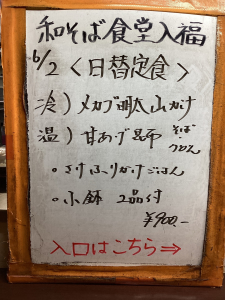 和そば食堂入福
6/2 <日替定食>
冷) メカブ 山かけ
温) 甘あげ そば うどん
。さけふりかけごはん
。小鉢 2品付
¥900.-
入口はこちら⇒